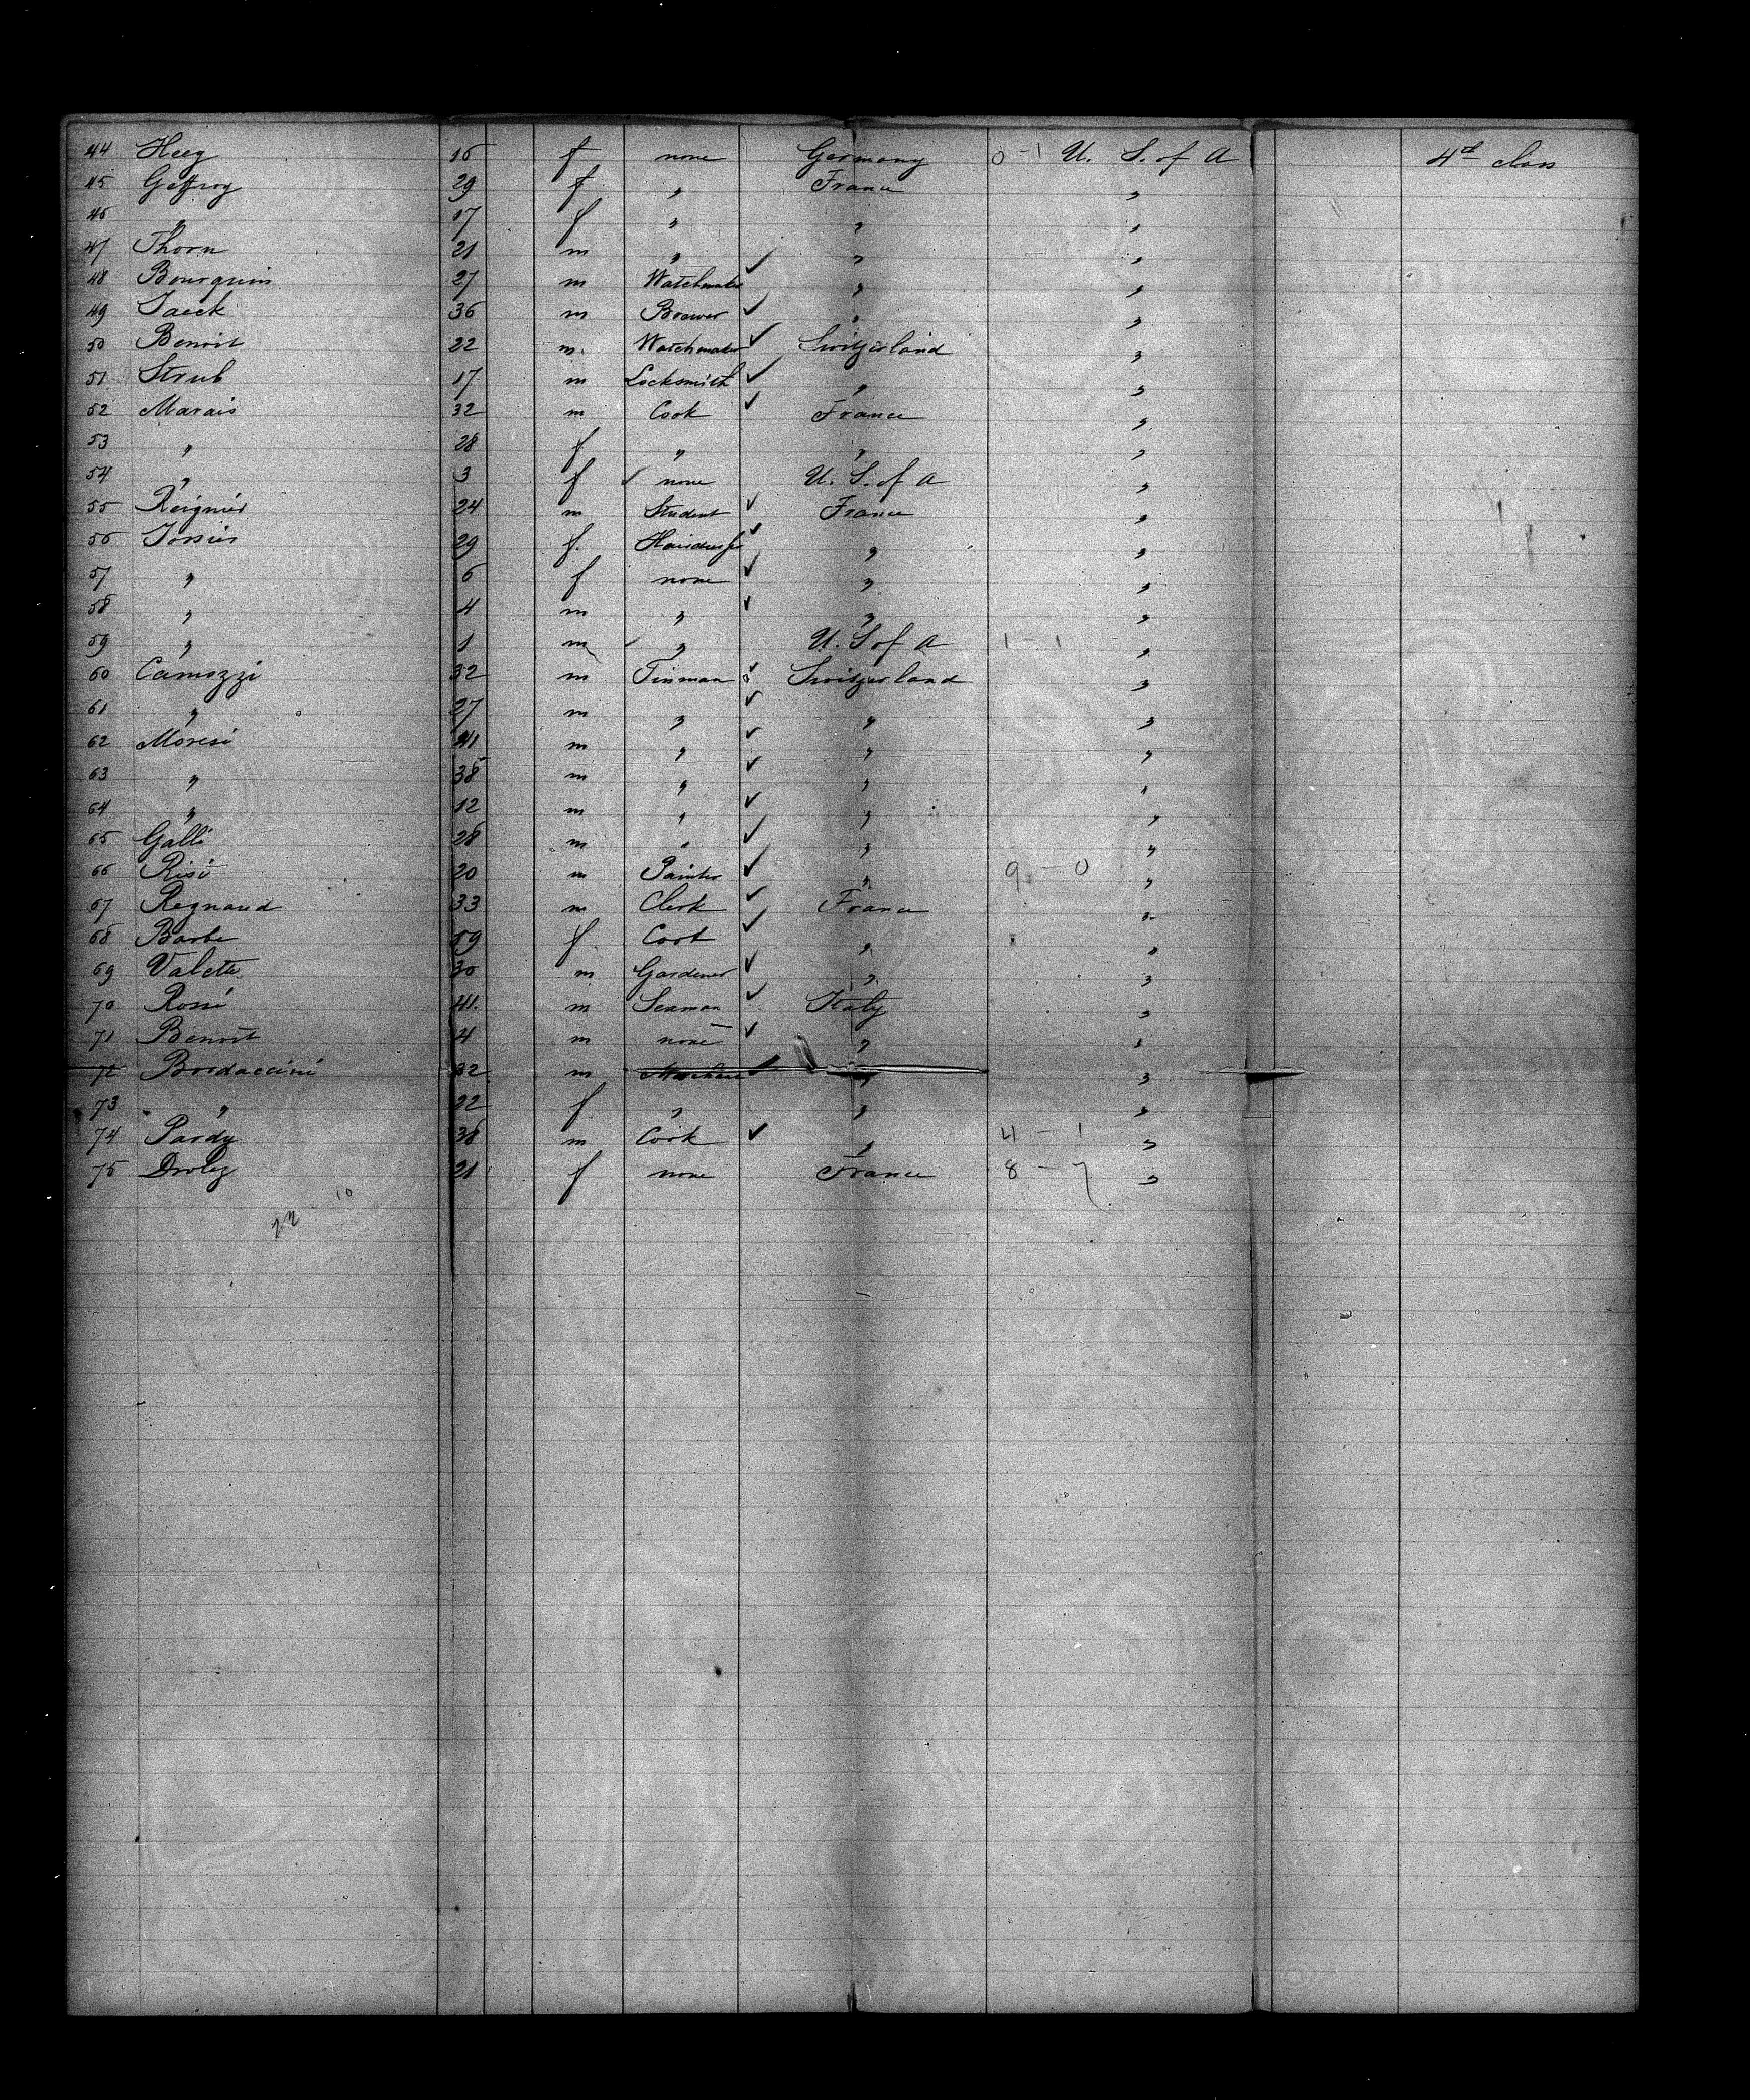 44 Heeg 16 f none Germany 0-1 U. S. of A 4d class
45 Geffroy 29 f " France "
46 " 17 f " " "
47 Thorn 21 m " " "
48 Bourquin 27 m Watchmaker " "
49 Jaeck 36 m Brewer " "
50 Benoit 22 m. Watchmaker Switzerland "
51 Strub 17 m Locksmith " "
52 Marais 32 m Cook France "
53 " 28 f " " "
54 " 3 f none U. S. of A "
55 Reignier 24 m Student France "
56 29 f. " "
57 " 6 f none " "
58 " 4 m " " "
59 " 1 m " U. S of A 1-1 "
60 Camozzi 32 m Tinman Switzerland "
61 " 27 m " " "
62 Moresi 41 m " " "
63 " 38 m " " "
64 " 12 m " " "
65 Galli 28 m " " "
66 Risi 20 m Painter " 9-0 "
67 Regnaud 33 m Clerk France "
68 Barbe 59 f. Cook " "
69 Valette 30 m Gardener " "
70 Rossi 41. m Seaman Italy "
71 Benoit 4 m none " "
72 Bordaccini 32 m " "
73 " 22 f " " "
74 Pardy 38 m Cook " 4-1 "
75 Drolez 21 f none France 8-7 "
10